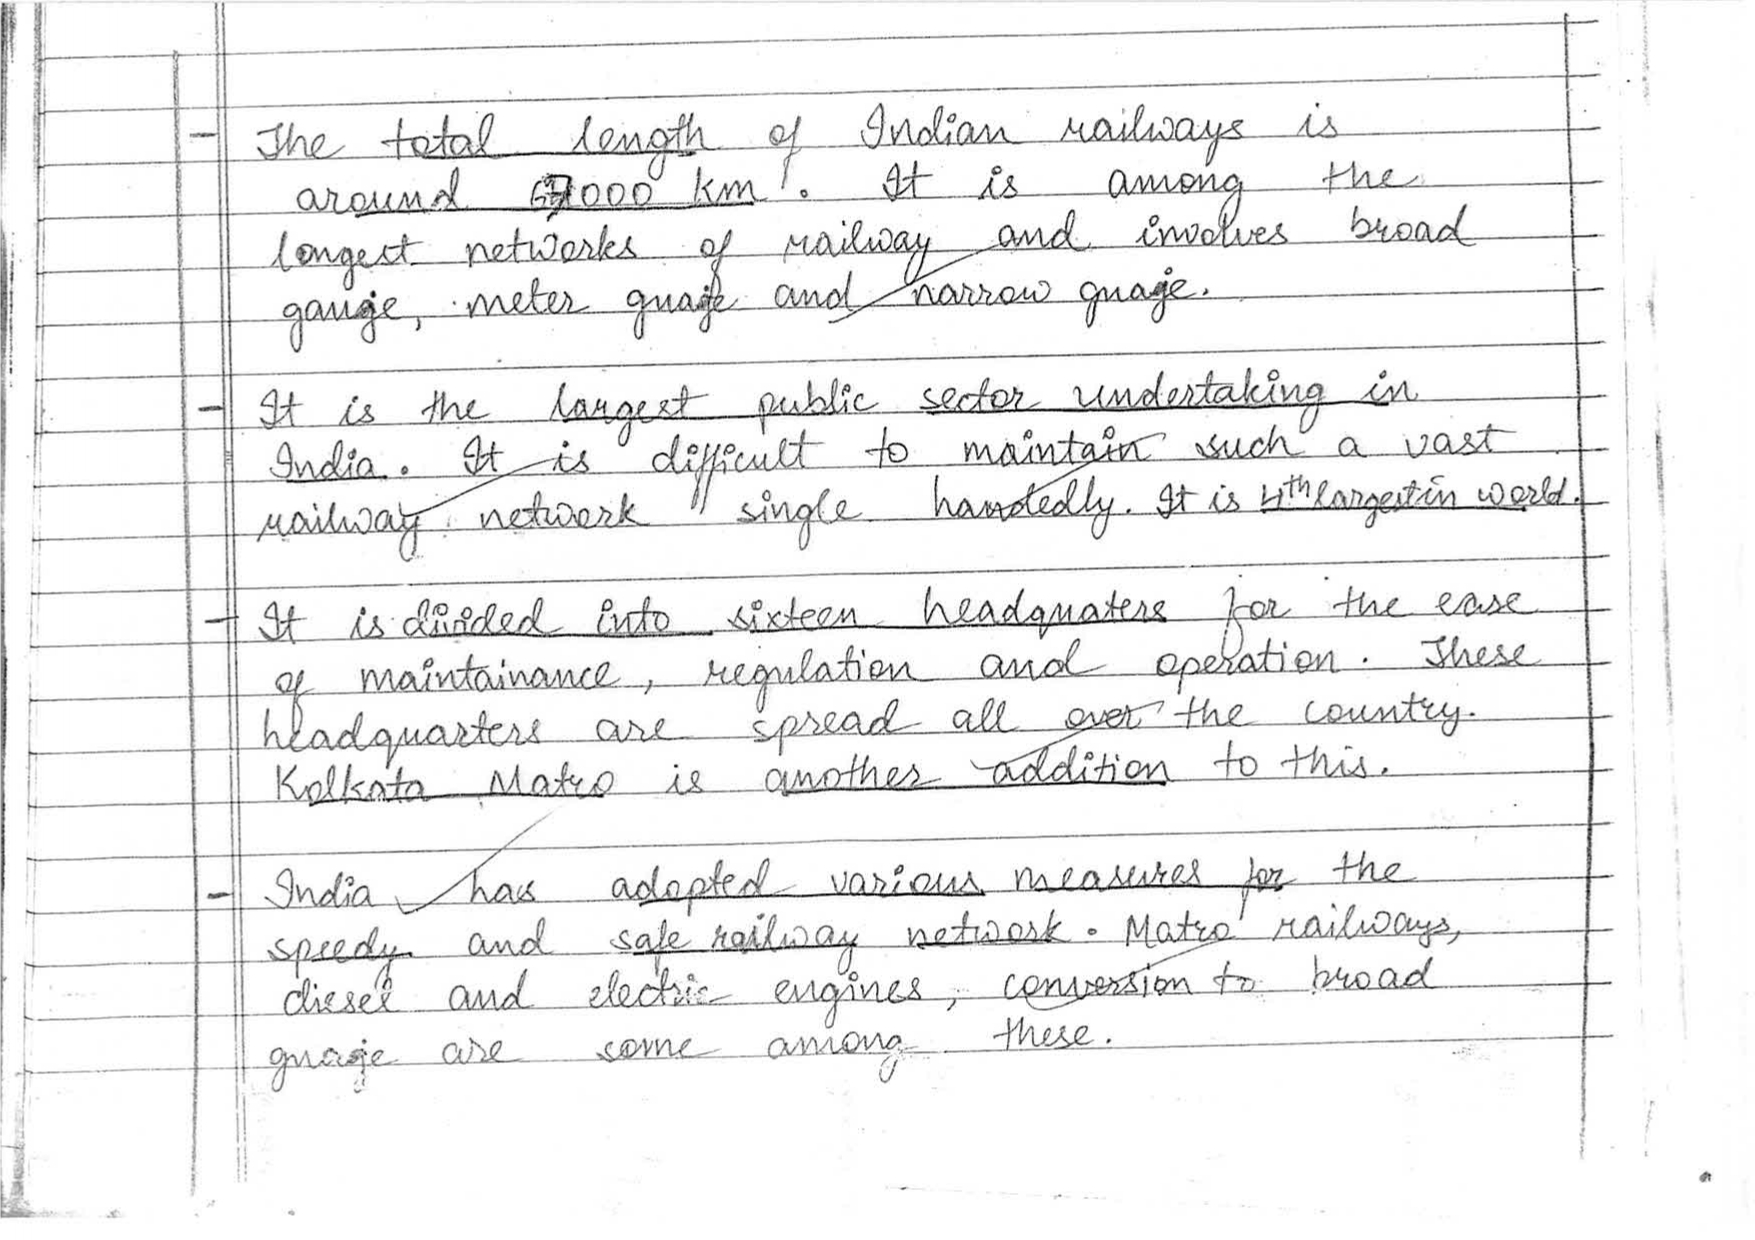 - The total length of Indian railways is
around 67000 km. It is among the
longest networks of railway and involves broad
gauge, meter guage and narrow guage.
- It is the largest public sector undertaking in
India. It is difficult to maintain such a vast
railway network single handedly. It is 4th largest in world.
- It is divided into sixteen headquaters for the ease
of maintainance, regulation and operation. These
headquarters are spread all over the country.
Kolkata Matro is another addition to this.
- India has adopted various measures for the
speedy and safe railway network. Matro railways,
diesel and electric engines, conversion to broad
guage are some among these.